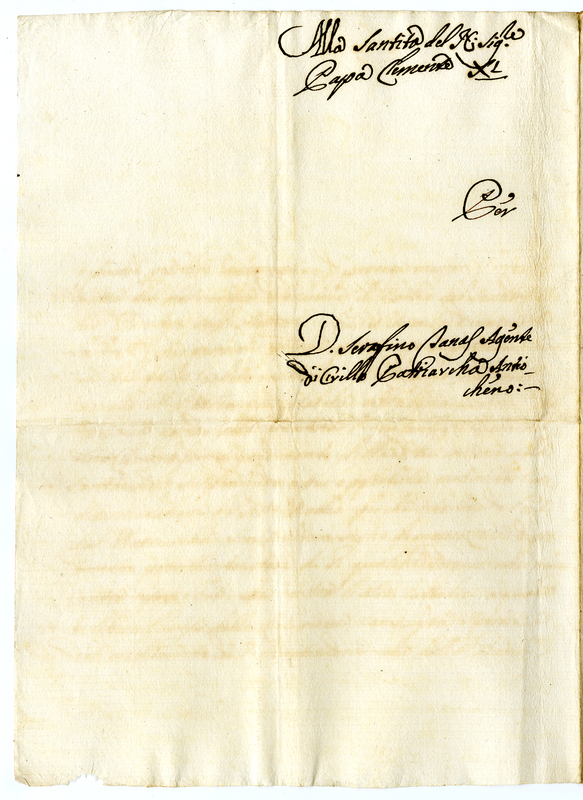 Alla Santità del N: Sig.re
Papa Clemente XI
Per
D. Serafino Agente
di Cirillo Patriarcha Antio-
cheno:-